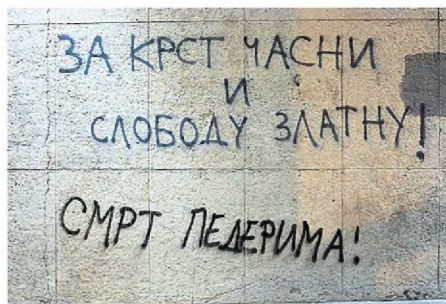 ЗА КРСТ ЧАСНИ
И
СЛОБОДУ ЗЛАТНУ!
СМРТ ПЕДЕРИМА!